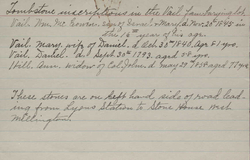 Tombstone inscriptions in the Vail family lot
Vail. Wm. McGowin. son of Daniel & Mary d. Nov. 20th 1845 in
the 16th year of his age.
Vail. Mary, wife of Daniel. d. Oct. 30th 1840. Age 41 yrs.
Vail. Daniel. d. Sept. 30th 1793. aged 58 yrs.
Hill. widow of Col. John. d. May 29th 1839 aged
These stones are on left hand side of road lead-
ing from Lyons Station to Stone House west
Millington